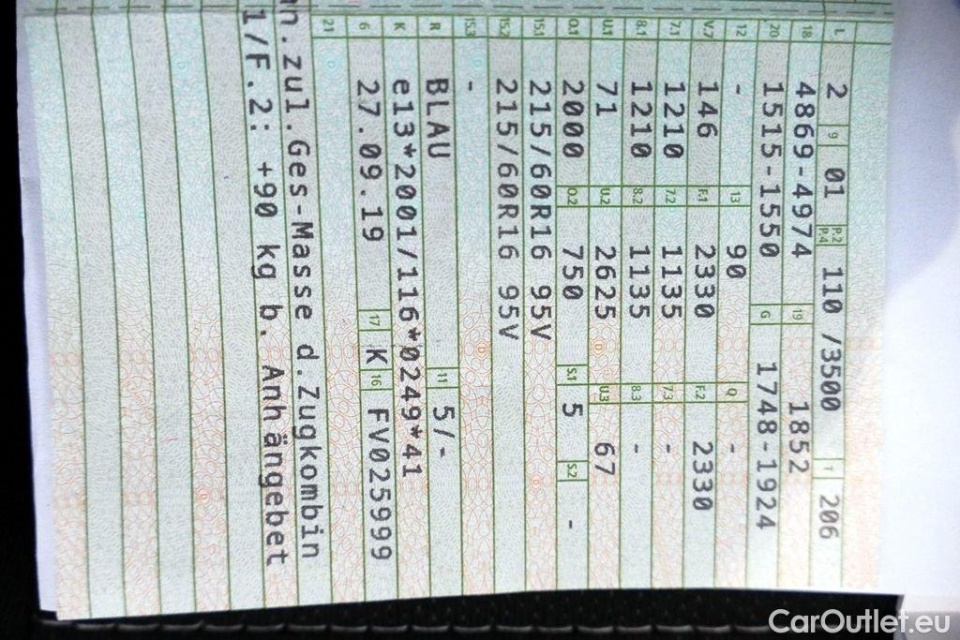 L 2 9 01 P.2 P.4 110 /3500 T 206
18 4869-4974 19 1852
20 1515-1550 G 1748-1924
12 - 13 90 Q -
V.7 146 F.1 2330 F.2 2330
7.1 1210 7.2 1135 7.3 -
8.1 1210 8.2 1135 8.3 -
U.1 71 U.2 2625 U.3 67
O.1 2000 O.2 750 S.1 5 S.2 -
15.1 215/60R16 95V
15.2 215/60R16 95V
15.3 -
R BLAU 11 5/-
K e13*2001/116*0249*41
6 27.09.19 17 K 16 FV025999
21
n.zul.Ges-Masse d.Zugkombin
1/F.2: +90 kg b. Anhängebet
CarOutlet.eu